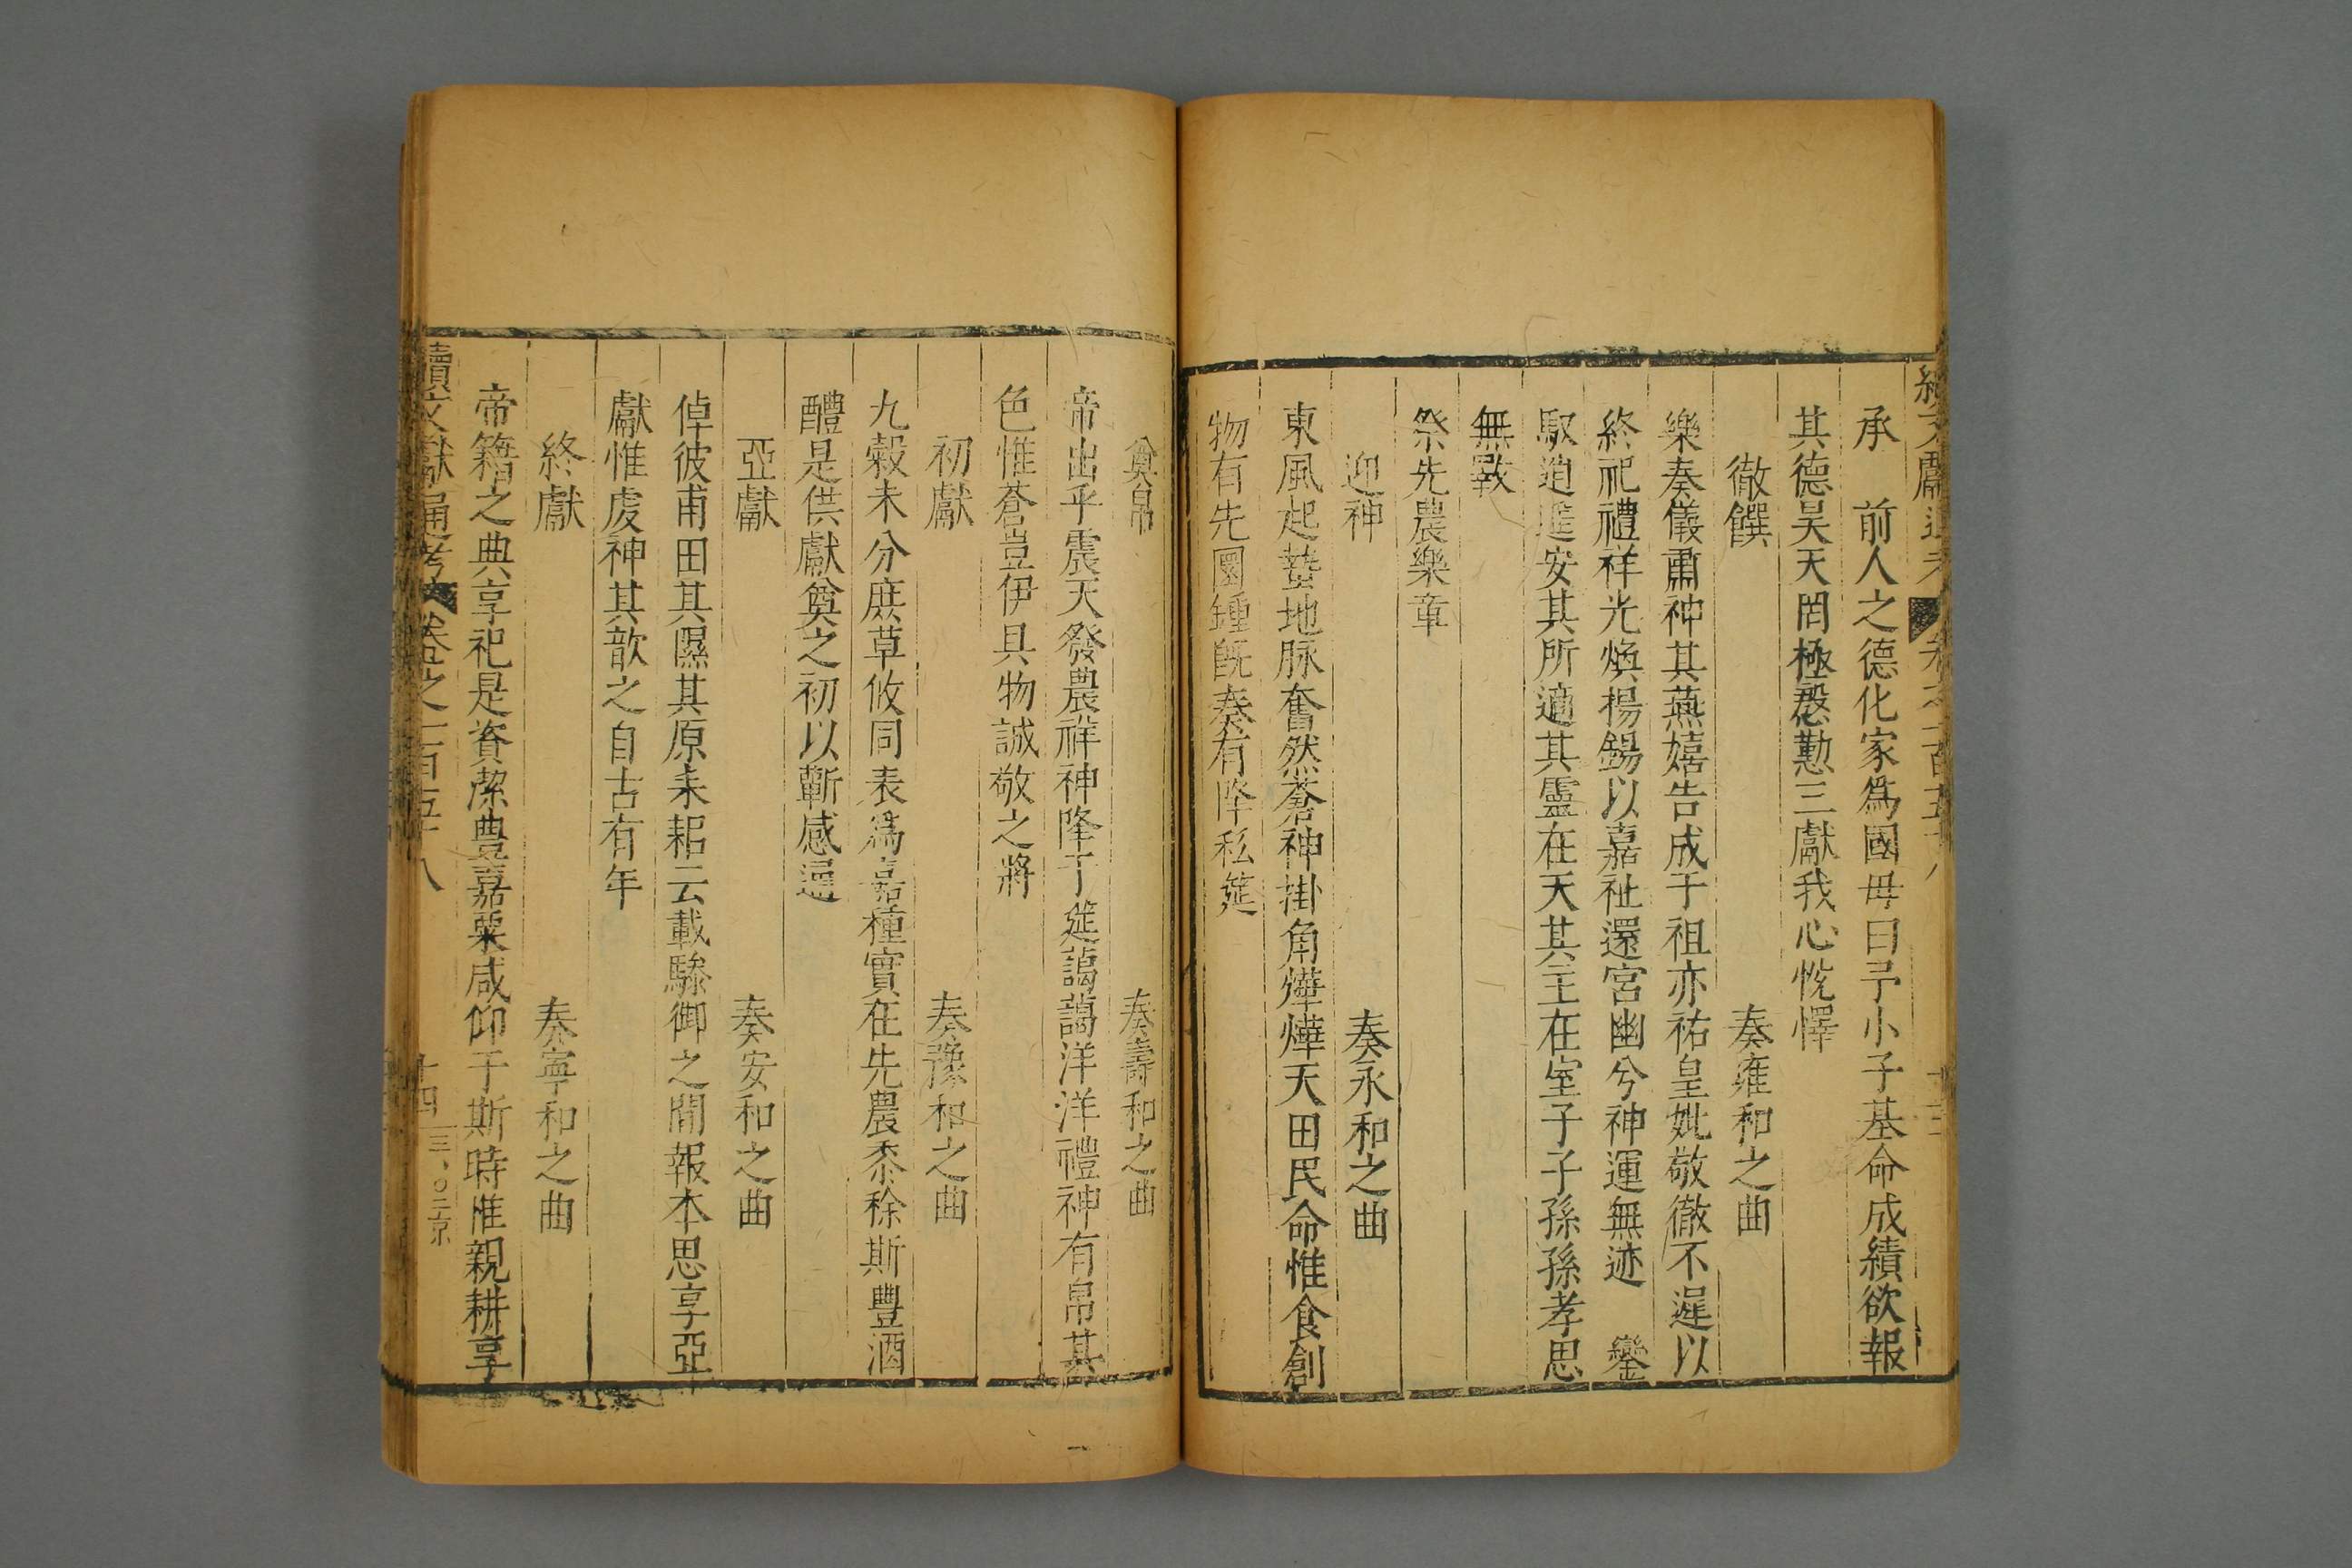 續文獻通考 卷之一百五十八 十三
承 前人之德化家爲國毋曰予小子基命成績欲報
其德昊天罔極慇懃三獻我心恱懌
徹饌 奏雍和之曲
樂奏儀肅神其燕嬉告成于祖亦祐皇妣敬徹不遲以
終祀禮祥光煥楊錫以嘉祉還宮幽兮神運無迹 鑾
馭逍遥安其所適其靈在天其主在室子子孫孫孝思
無斁
祭先農樂章
迎神 奏永和之曲
東風起蟄地脉奮然蒼神掛角燁燁天田民命惟食創
物有先圜鍾旣奏有降私筵
奠帛 奏壽和之曲
帝出乎震天發農祥神降于筵藹藹洋洋禮神有帛其
色惟蒼豈伊具物誠敬之將
初獻 奏豫和之曲
九穀未分庶草攸同表爲嘉種實在先農黍稌斯豐酒
醴是供獻奠之初以蘄感通
亞獻 奏安和之曲
倬彼甫田其隰其原耒耜云載驂御之間報本思享亞
獻惟虔神其歆之自古有年
終獻 奏寧和之曲
帝籍之典享祀是資潔豊嘉栗咸仰于斯時惟親耕享
續文獻通考 卷之一百五十八 十四